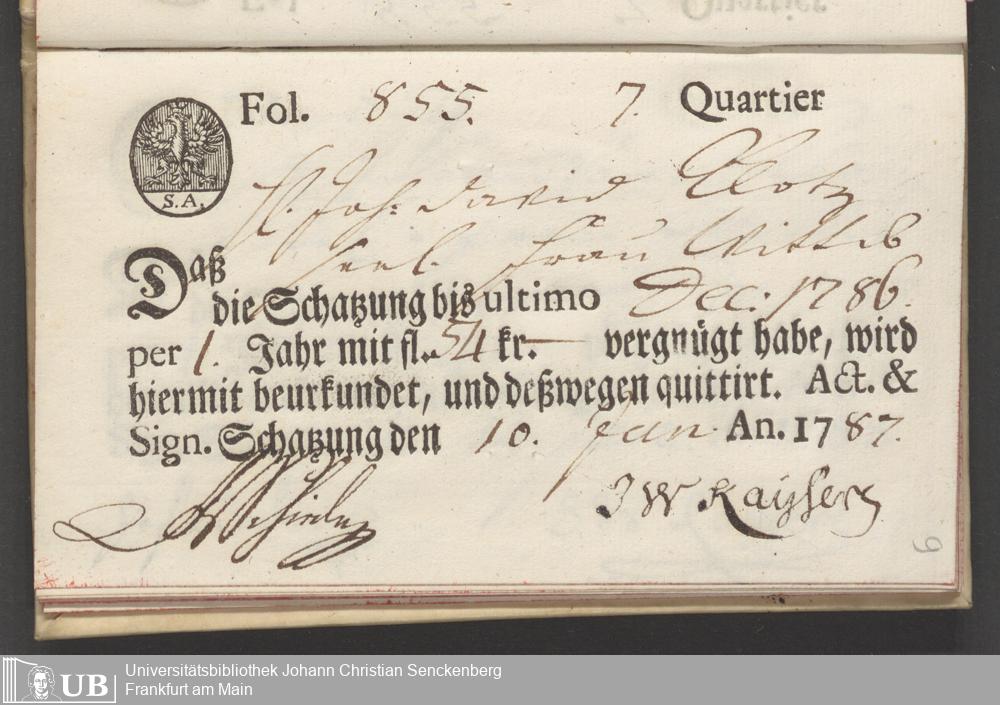 Fol. 855. 7. Quartier
S.A.
H. Joh: david Clotz
seel. Frau Wittib
Daß
die Schatzung bis ultimo Dec: 1786.
per 1. Jahr mit fl.. 54 kr. vergnügt habe, wird
hiermit beurkundet, und deßwegen quittirt. Act. &
Sign. Schatzung den 10. Jan. An. 1787.
JW Kayser
6
UB
Universitätsbibliothek Johann Christian Senckenberg
Frankfurt am Main